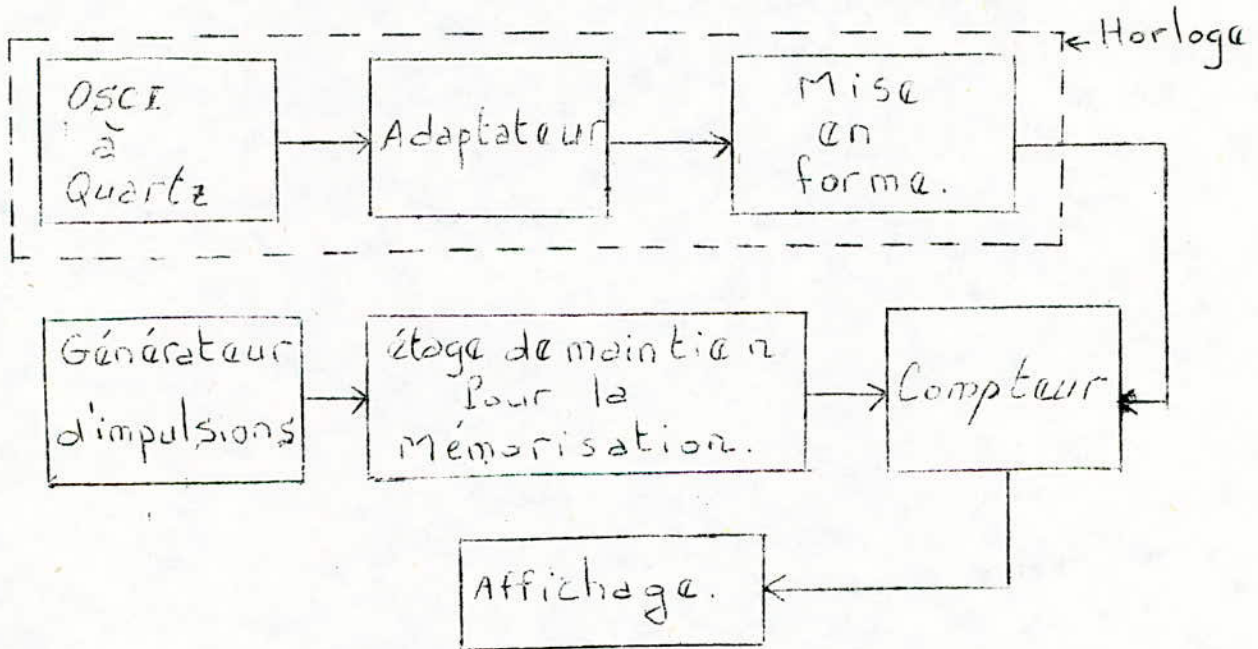 Horloge
OSCI
à
Quartz
Adaptateur
Mise
en
forme.
Générateur
d'impulsions
étage de maintien
Pour la
Mémorisation.
Compteur
Affichage.